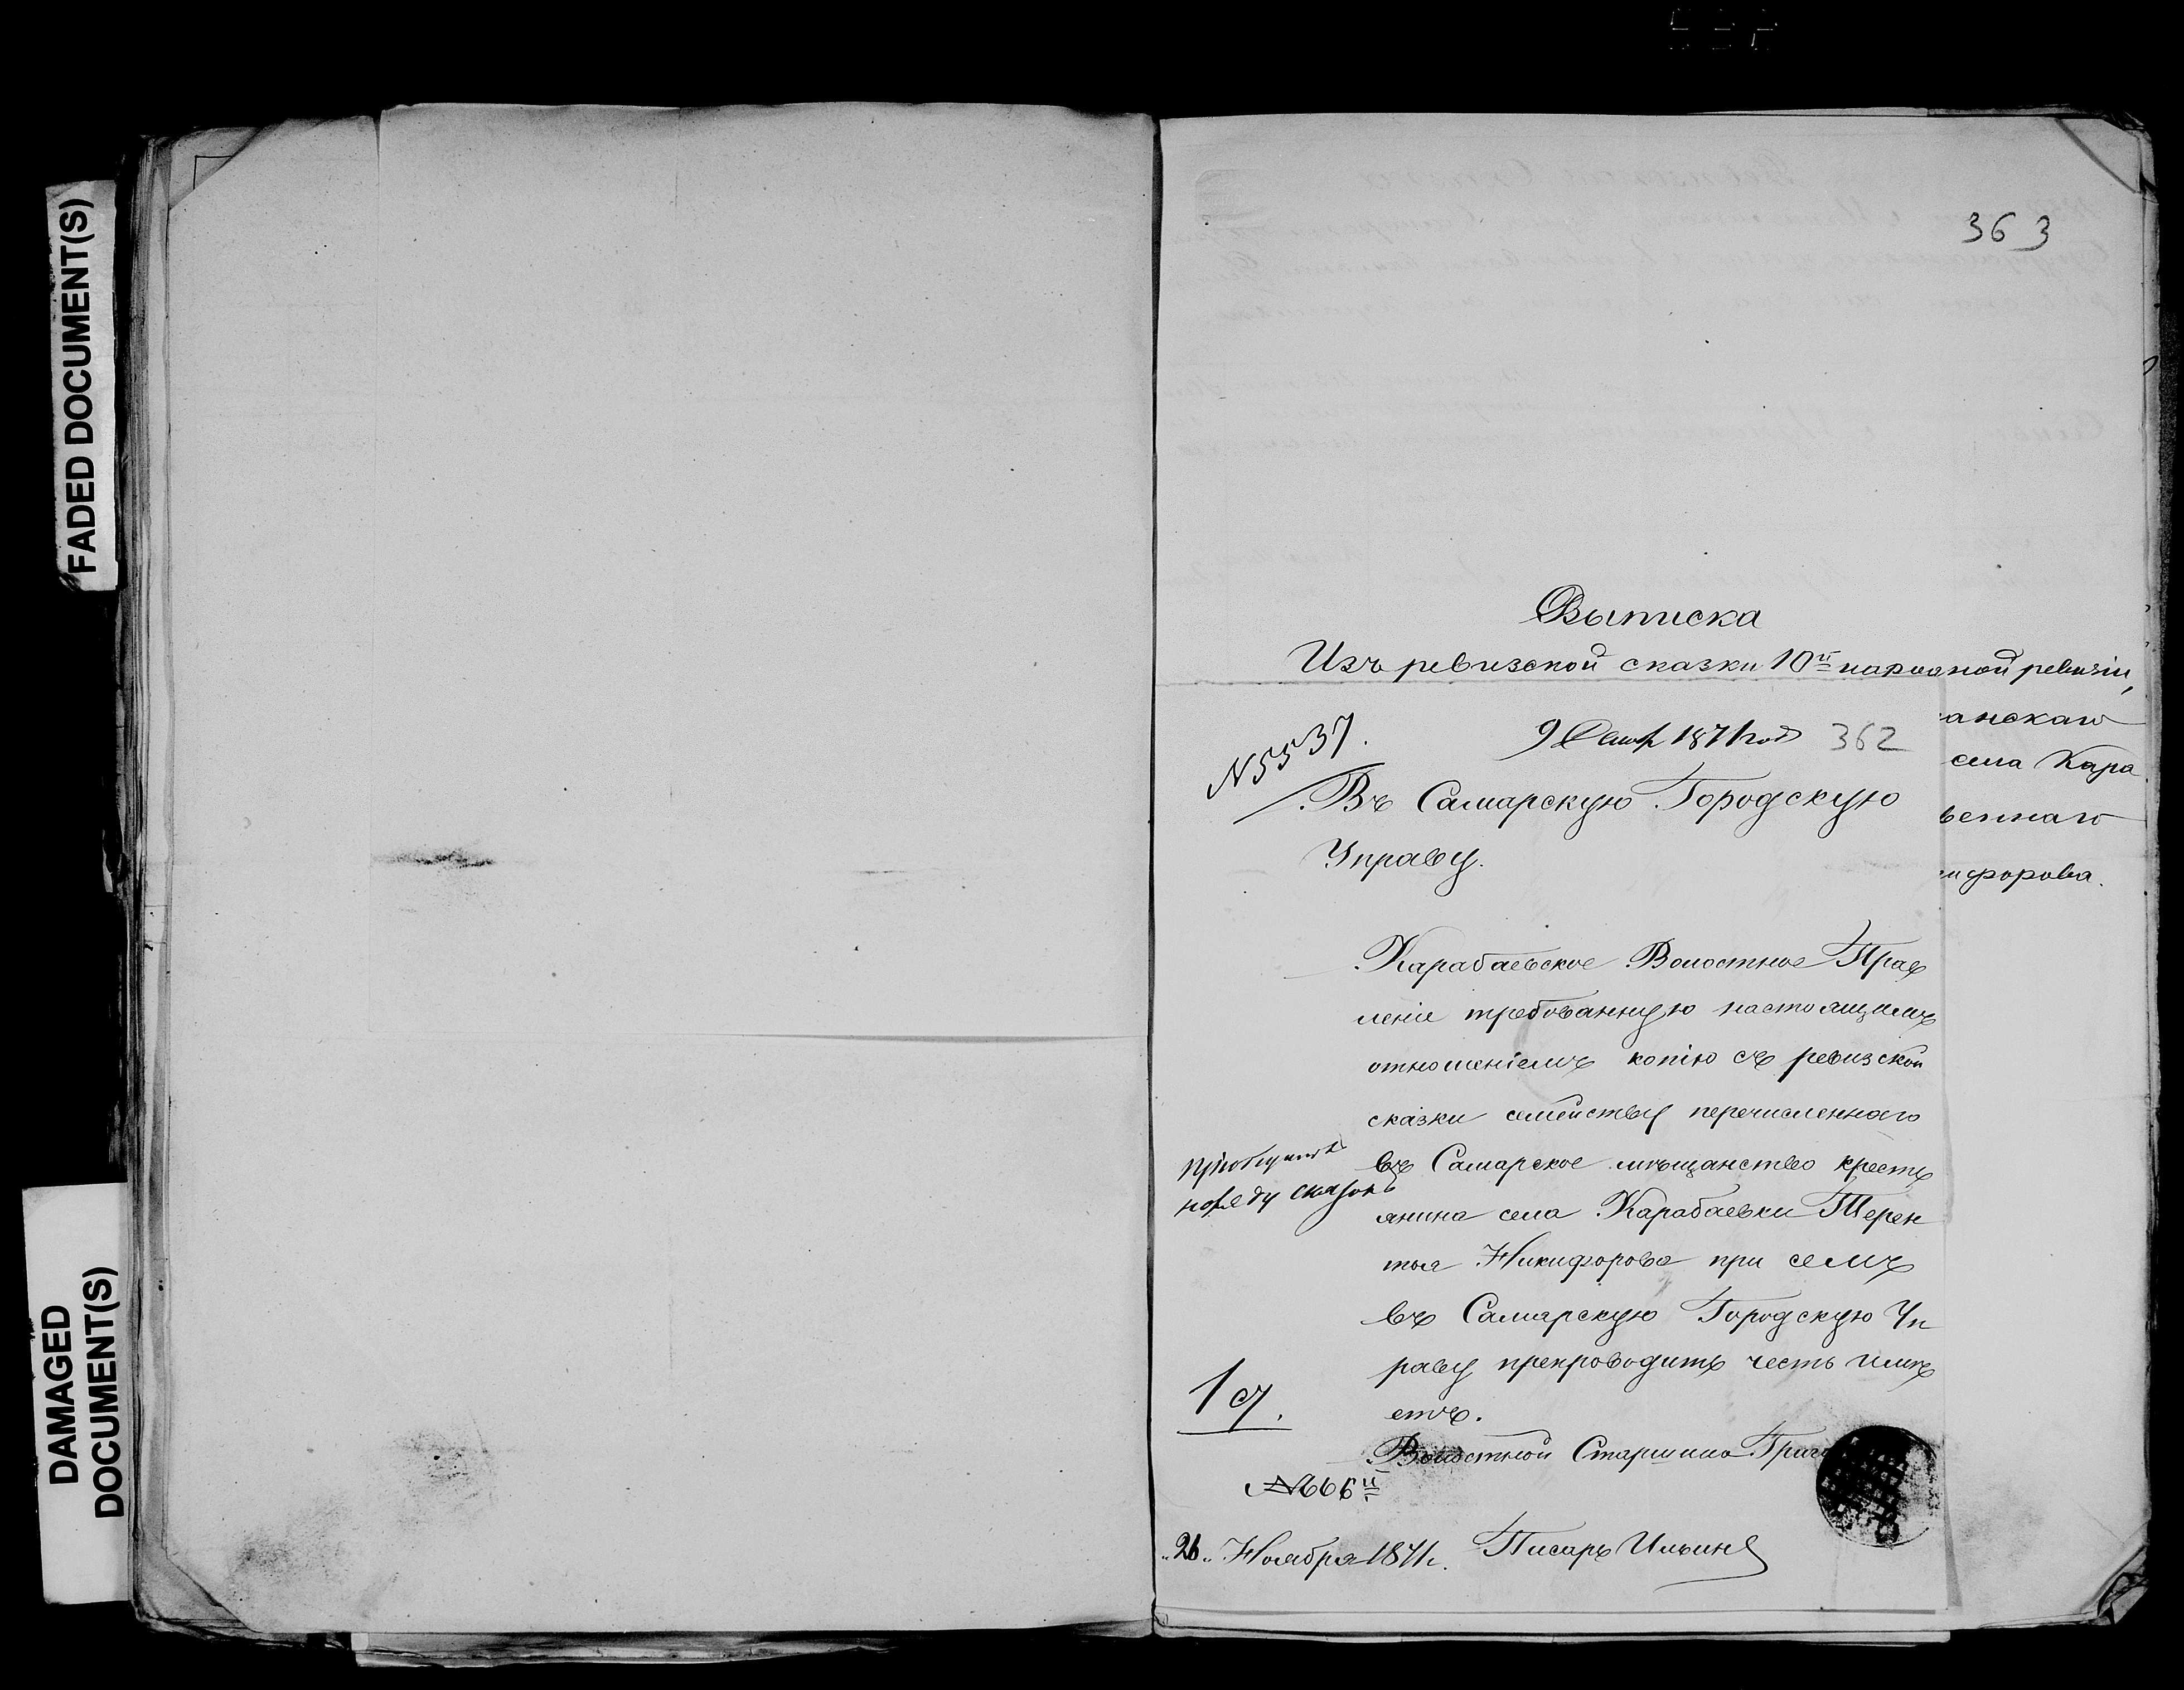 FADED DOCUMENT(S)
DAMAGED
DOCUMENT(S)
363
Выписка
Изъ ревизской сказки 10й народной ревизіи,
анскаго
села Кара
веннаго
ифорова.
N5537.
9 Декабр 1871 год 362
Въ Самарскую Городскую
Управу.
Карабаевское Волостное Прав
леніе требованную настоящимъ
отношеніемъ копію съ ревизской
сказки семейству перечисленнаго
въ Самарское мѣщанство кресть
янина села Карабаевки Терен
тья Никифорова при семъ
въ Самарскую Городскую Уп
раву препроводить честь имѣ
етъ.
къ
сказокъ
1 ст.
Волостной Старшина
№666й
„26„ Ноября 1871г. Писарь Ильинъ